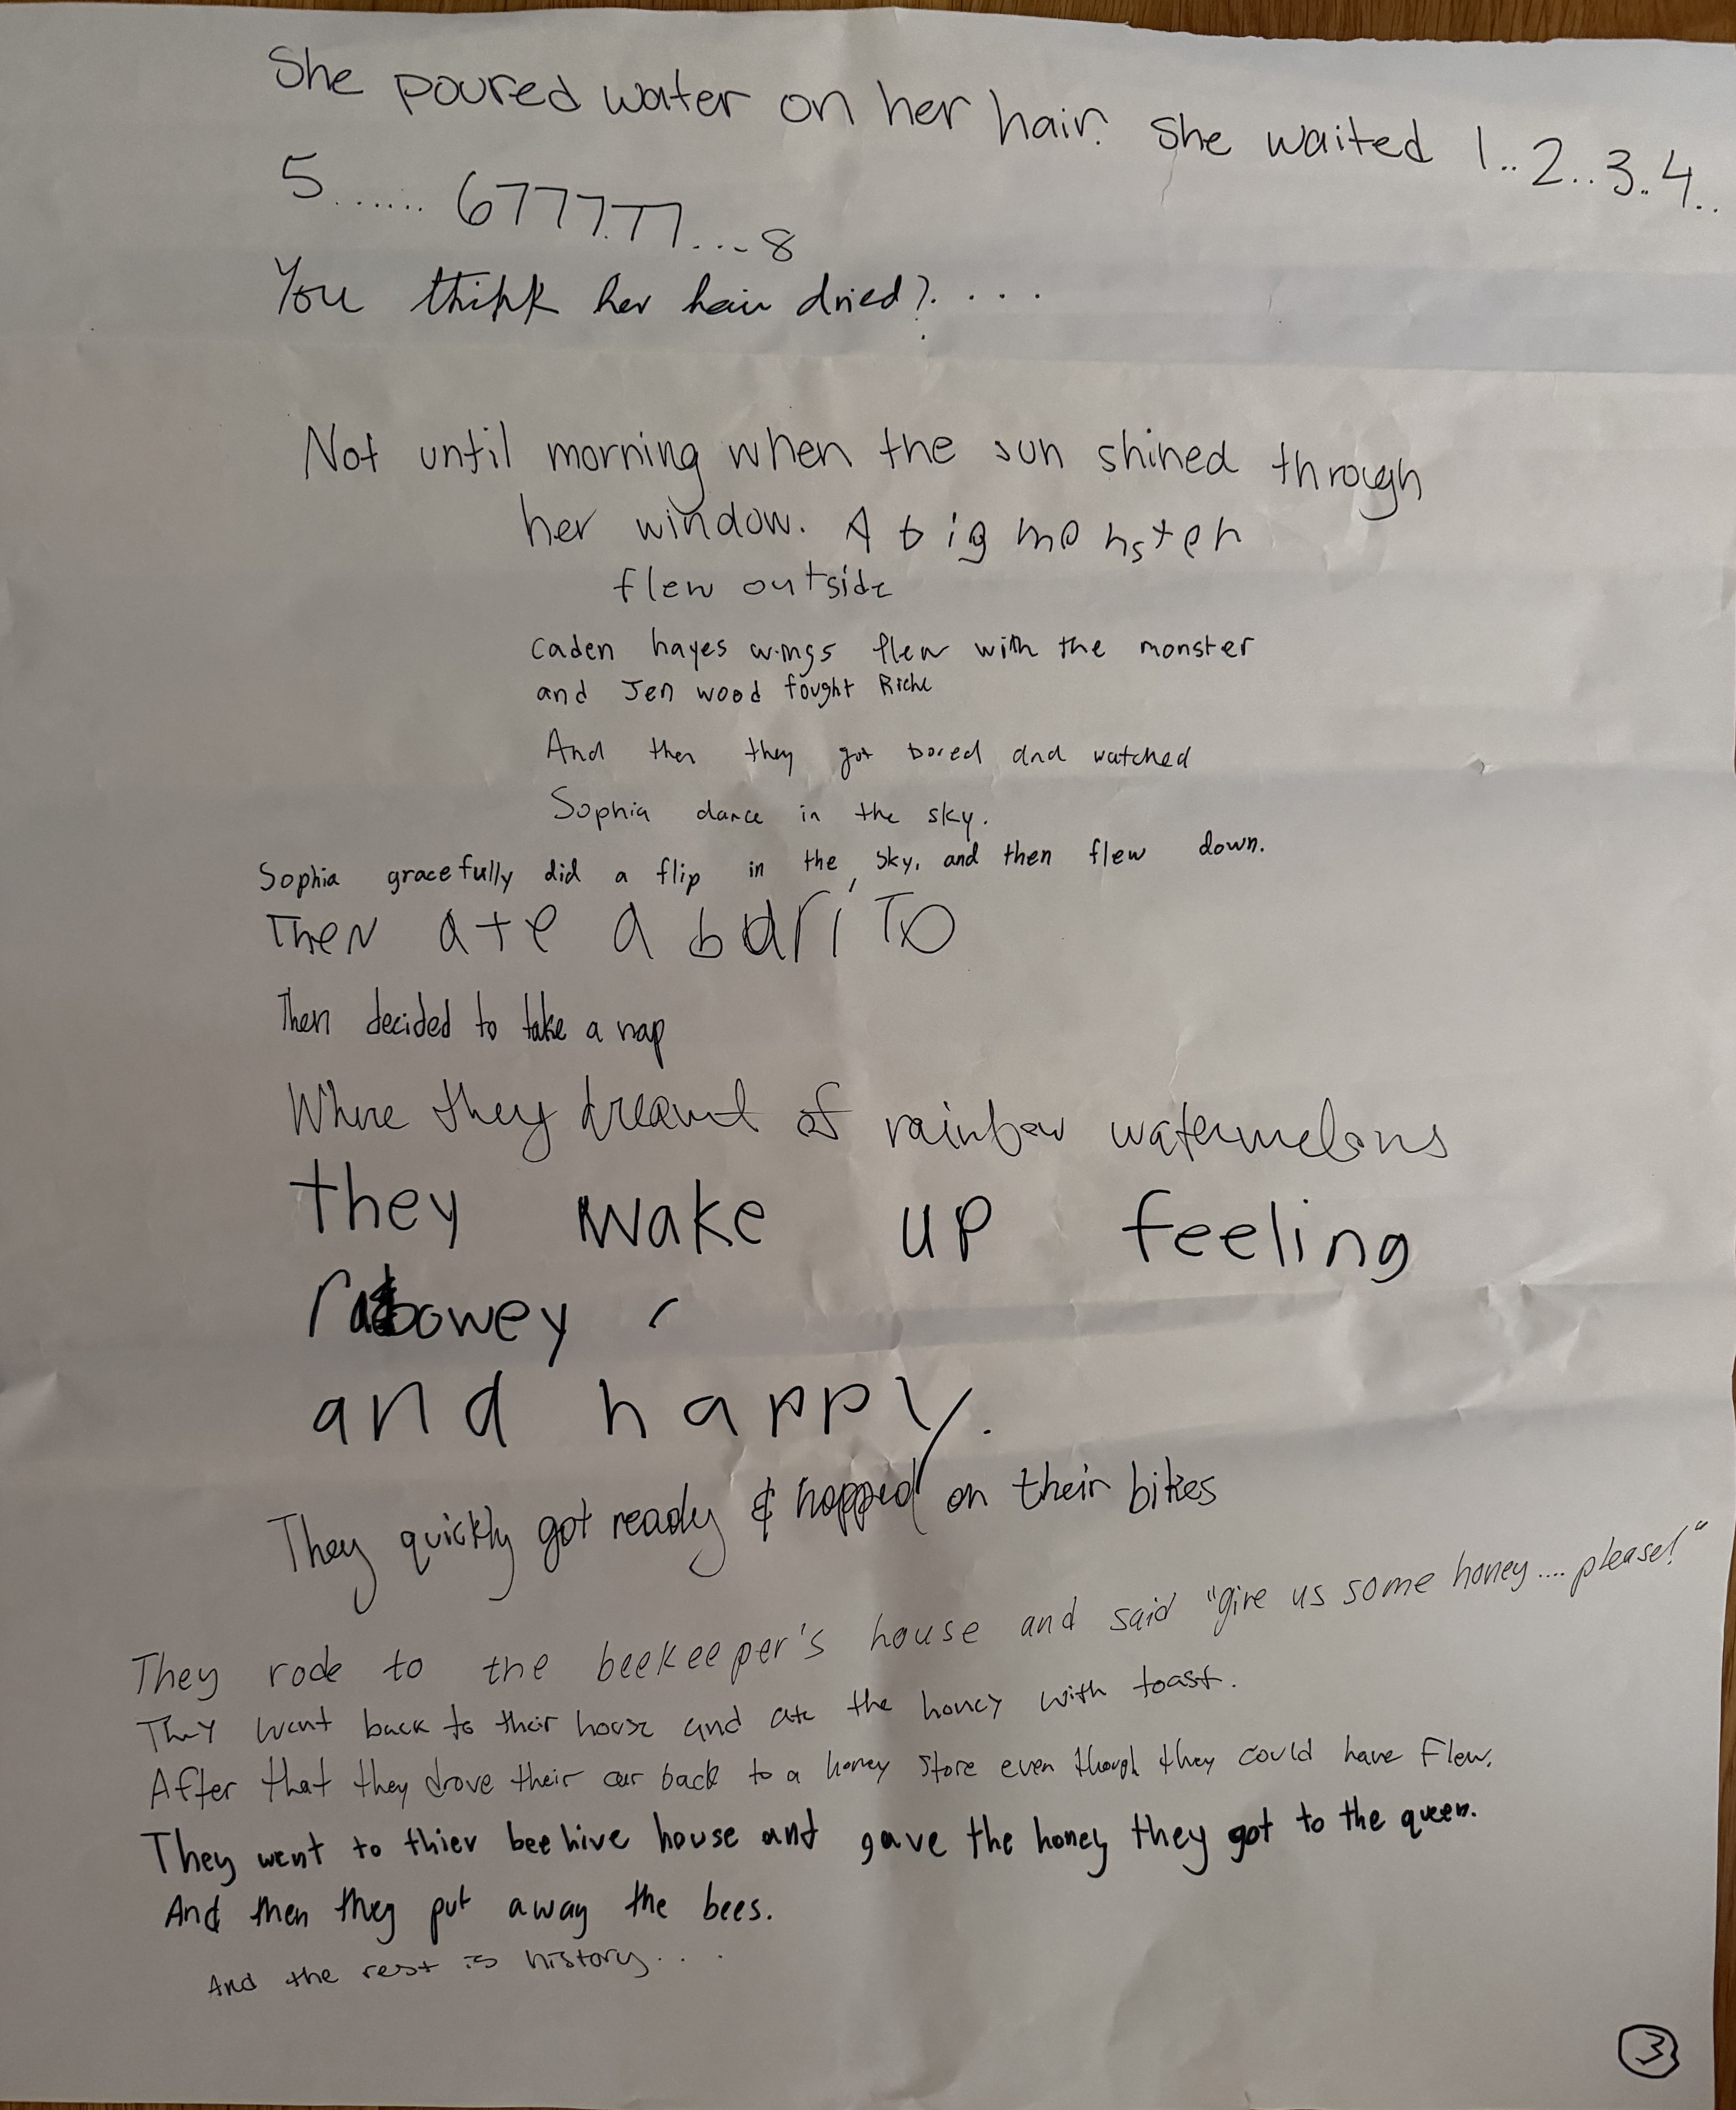 She poured water on her hair. She waited 1..2..3..4..
5...... 677777....8
You think her hair dried?....
Not until morning when the sun shined through
her window. A big monster
flew outside
Caden hayes wings flew with the monster
and Jen wood fought
And then they got bored and watched
Sophia dance in the sky.
Sophia gracefully did a flip in the sky, and then flew down.
Then ate a barito
Then decided to take a nap
Where they dreamt of rainbow watermelons
they wake up feeling

and happy.
They quickly got ready & hopped on their bikes
They rode to the beekeeper's house and said "give us some honey.... please!"
They went back to their house and ate the honey with toast.
After that they drove their car back to a honey store even though they could have flew.
They went to thier beehive house and gave the honey they got to the queen.
And then they put away the bees.
And the rest is history...
3